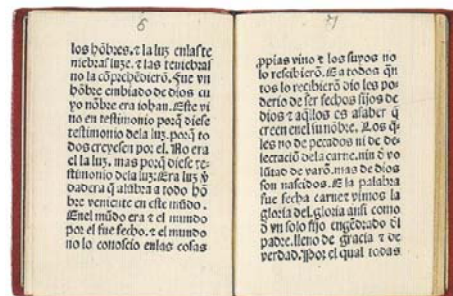 6
los hõbres. ⁊ la luz enlas te
niebras luze. ⁊ las teniebras
no la cõprehẽdierõ. Fue vn
hõbre embiado de dios cu
yo nõbre era iohan. Este vi
no en testimonio porq̃ diese
testimonio dela luz. porq̃ to
dos creyesen por el. No era
el la luz. mas porq̃ diese te-
stimonio dela luz. Era luz ṽ
dadera q̃ alũbra a todo hõ
bre veniente en este mũdo.
Enel mũdo era ⁊ el mundo
por el fue fecho. ⁊ el mundo
no lo conoscio enlas cosas
7
ꝓpias vino ⁊ los suyos no
lo rescibierõ. E a todos q̃n
tos lo recibierõ dio les po
derio de ser fechos fijos de
dios ⁊ aq̃llos es asaber q̃
creen enel su nõbre. Los q̃
les no de pecados ni de de
lectaciõ dela carne. nin đ vo
lũtad de varõ. mas de dios
son nascidos. E la palabra
fue fecha carne ⁊ vimos la
gloria del. gloria ansi como
đ vn solo fijo engẽdrado đl
padre. lleno de gracia ⁊ de
verdad. Por el qual todas